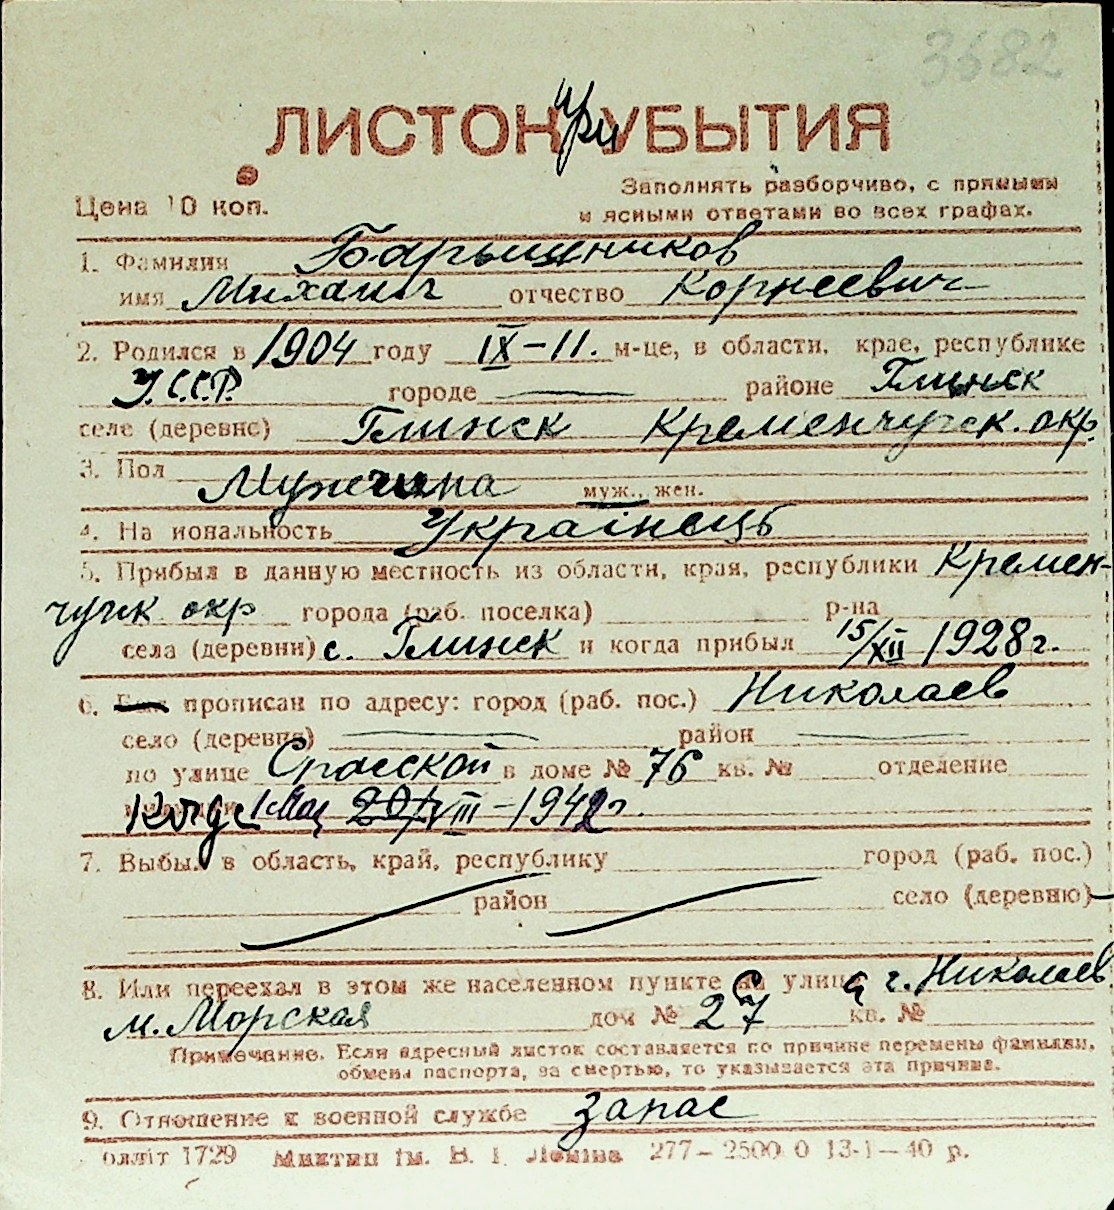 3682
ЛИСТОК при УБЫТИЯ
Цена 10 коп.
Заполнять разборчиво, с прямыми
и ясными ответами во всех графах.
1. Фамилия Барышников
имя Михаил отчество Корнеевич
2. Родился в 1904 году IX-11. м-це, в области, крае, республике
У.С.С.Р. городе — районе Глинск
селе (деревне) Глинск Кременчугск. окр.
3. Пол Мужчина муж., жен.
4. На иональность Українець
5. Прибыл в данную местность из области, края, республики Кремен-
чугск окр города (раб. поселка) р-на
села (деревни) с. Глинск и когда прибыл 15/XII 1928 г.
6. прописан по адресу: город (раб. пос.) Николаев
село (деревня) — район —
по улице Спасской в доме № 76 кв. № отделение
VIII-1942 г.
7. Выбыл в область, край, республику город (раб. пос.)
район село (деревню)
8. Или переехал в этом же населенном пункте с улицы г. Николаев
м. Морская дом № 27 кв. №
Примечание. Если адресный листок составляется по причине перемены фамилии,
обмена паспорта, за смертью, то указывается эта причина.
9. Отношение к военной службе запас
олліт 1729 Миктип ім. В. І. Леніна 277— 2500 0 13-1—40 р.